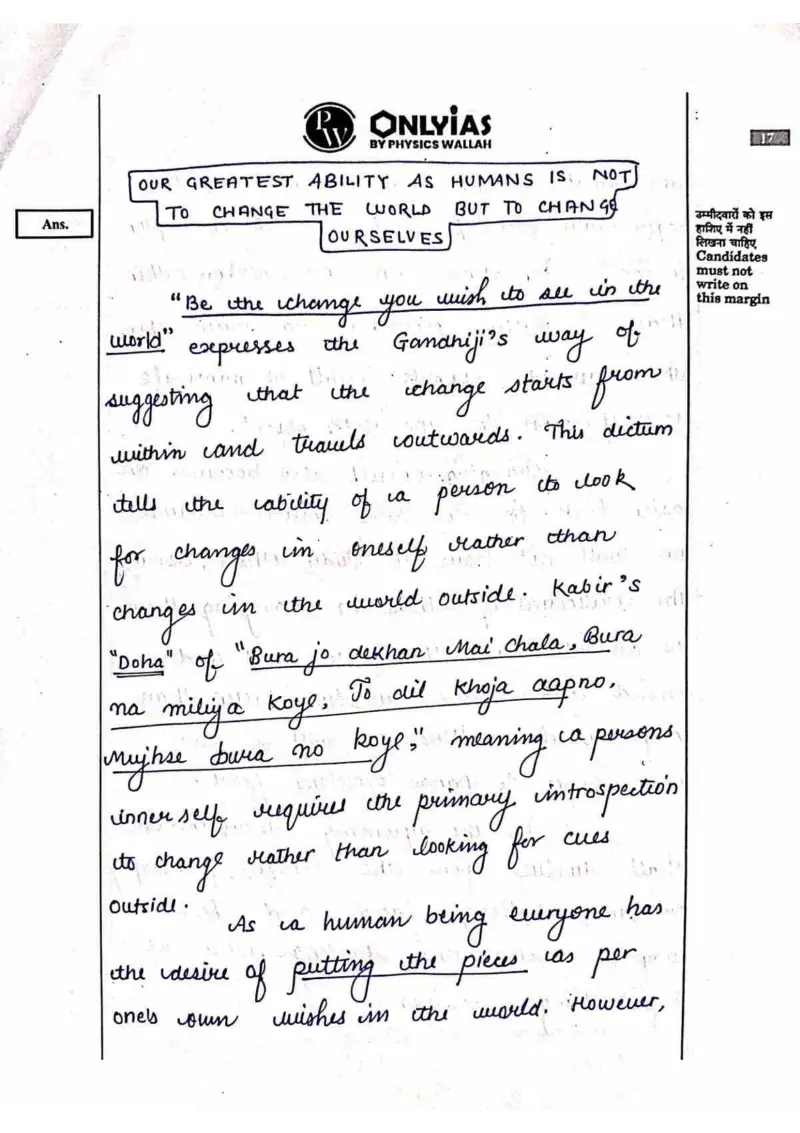 PW ONLYIAS
BY PHYSICS WALLAH
17
OUR GREATEST ABILITY AS HUMANS IS NOT
TO CHANGE THE WORLD BUT TO CHANGE
OURSELVES
Ans.
उम्मीदवारों को इस
हाशिए में नहीं
लिखना चाहिए
Candidates
must not
write on
this margin
"Be the change you wish to see in the
world" expresses the Gandhiji's way of
suggesting that the change starts from
within and travels outwards. This dictum
tells the ability of a person to look
for changes in oneself rather than
changes in the world outside. Kabir's
"Doha" of "Bura jo dekhan Mai chala, Bura
na miliya koye, To dil khoja aapno.
Mujhse bura no koye," meaning a persons
inner self requires the primary introspection
to change rather than looking for cues
outside.
As a human being everyone has
the desire of putting the pieces as per
one's own wishes in the world. However,